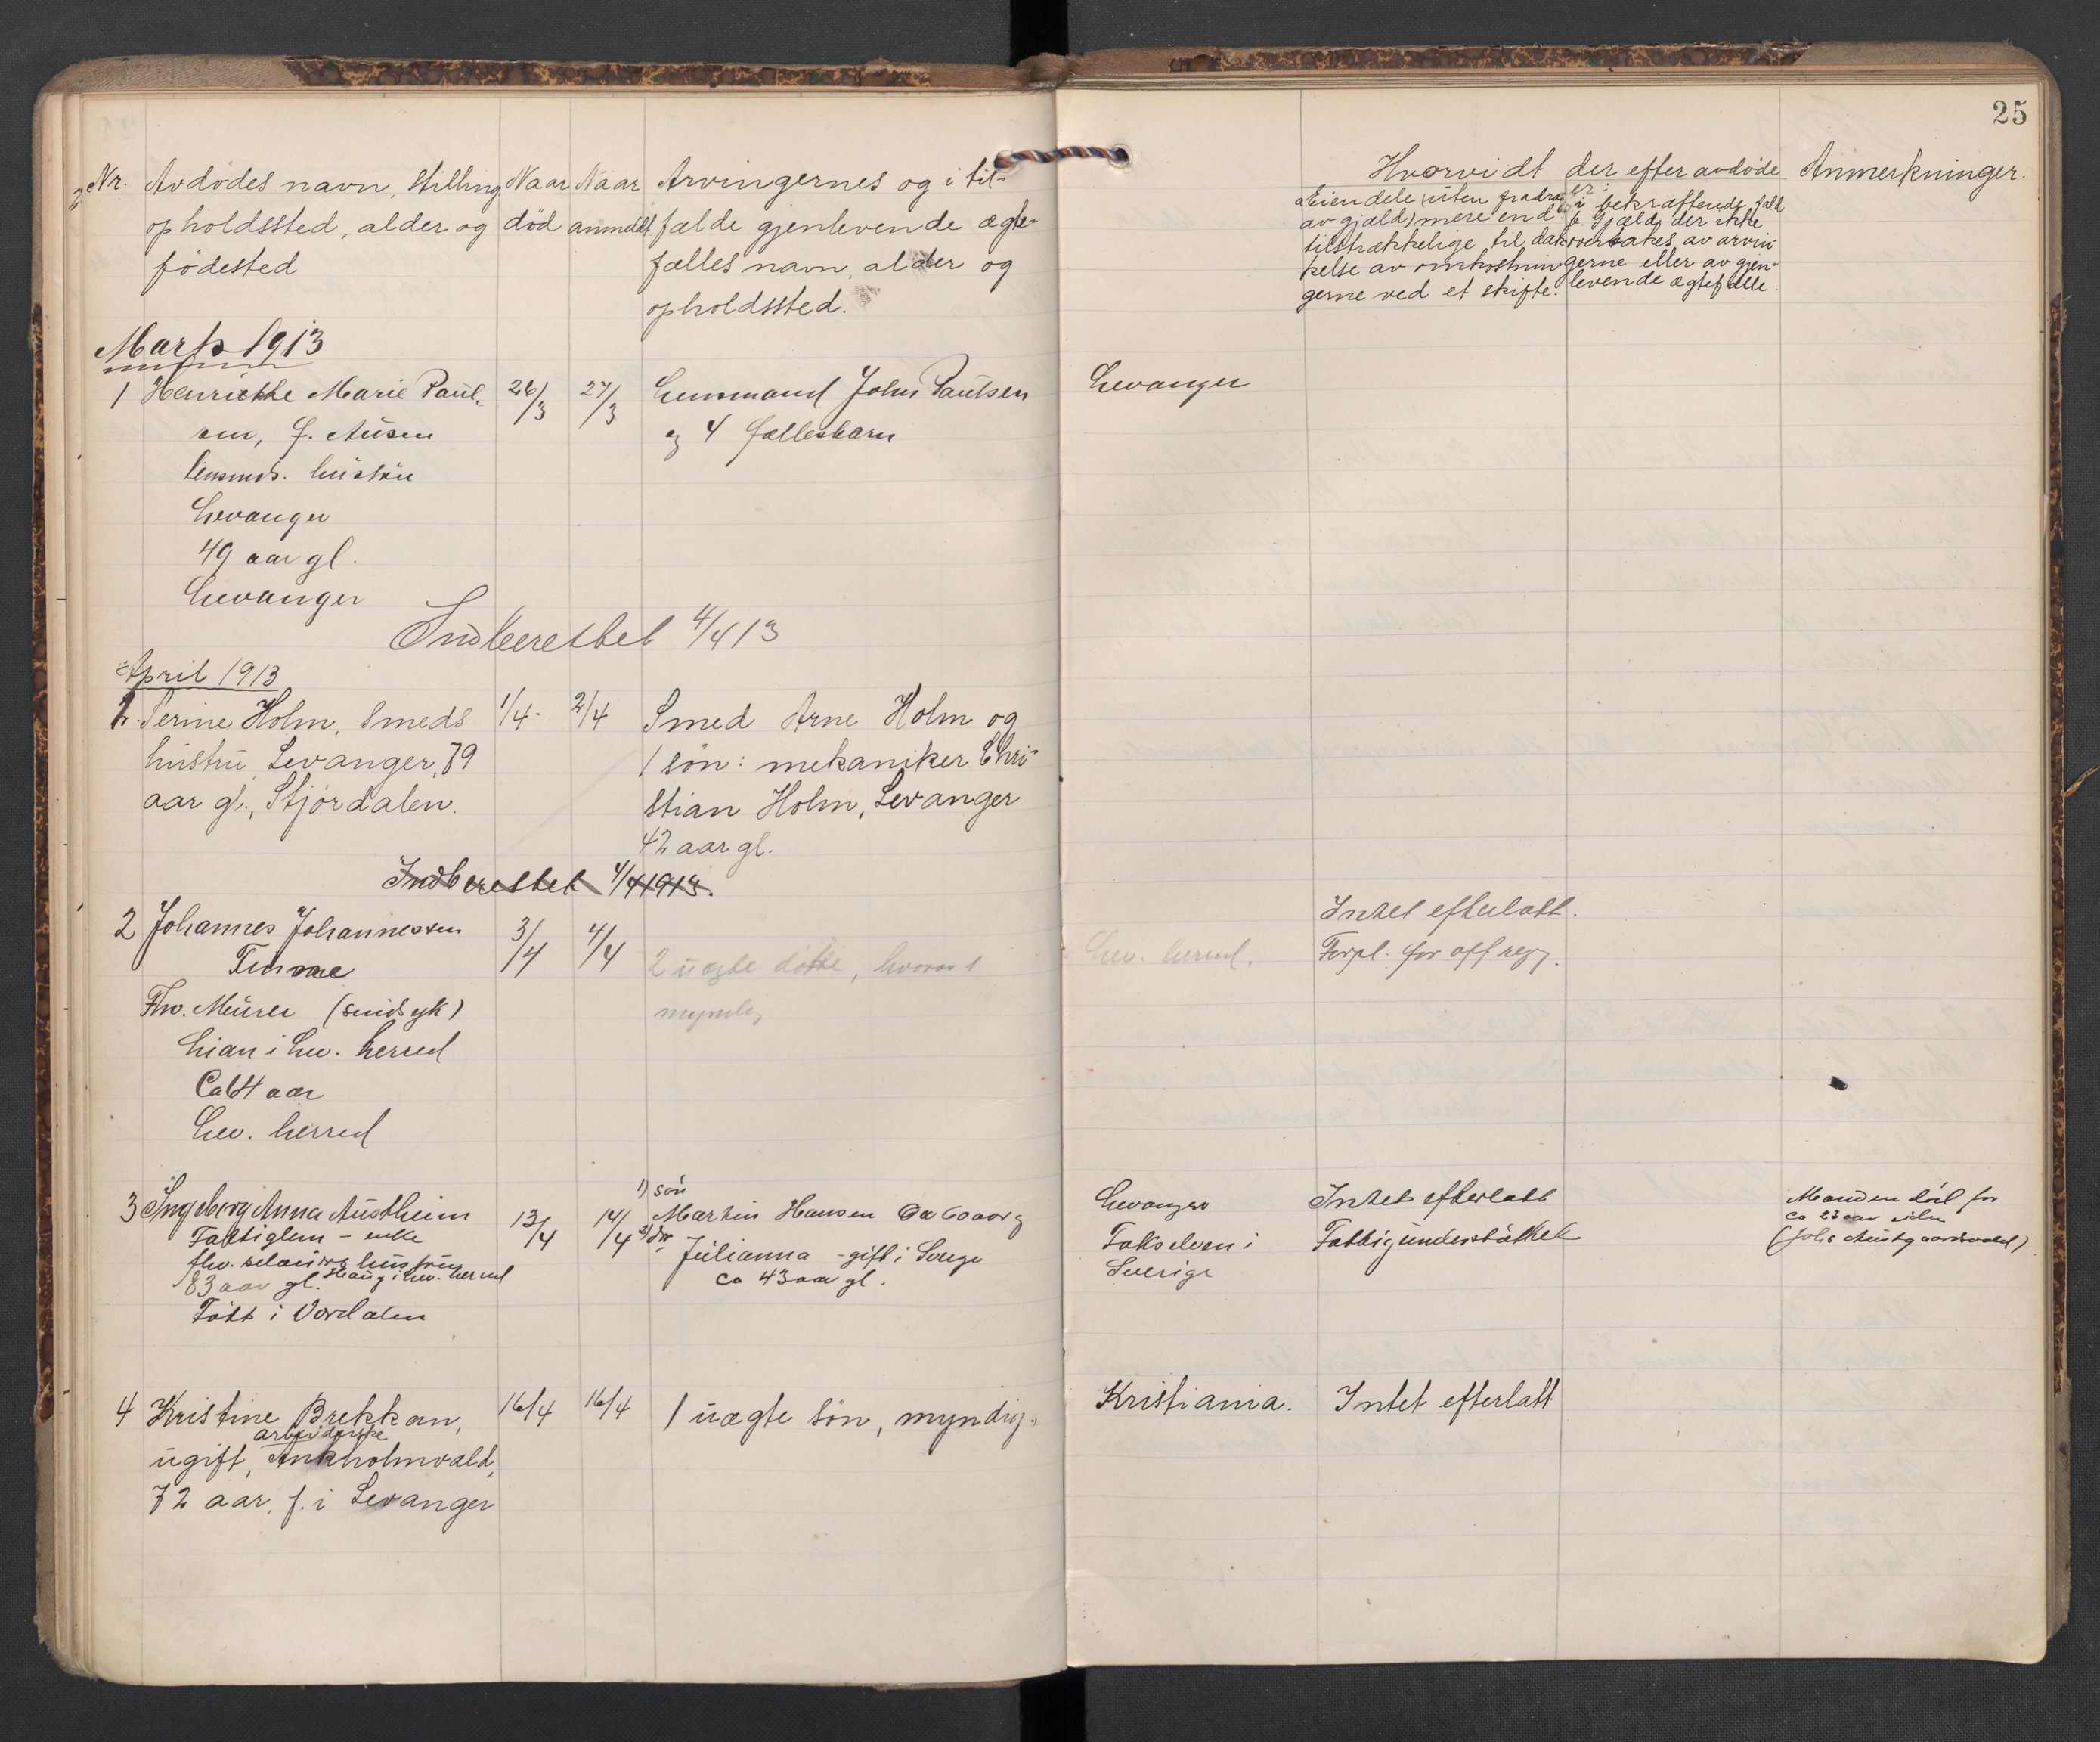 25
Nr. Avdödes navn, stilling, Naar Naar Arvingernes og i til-
opholdssted, alder og död anmeldt fælde gjenlevende ægte-
födested
fælles navn, alder og
opholdssted.
Hvorvidt der efter avdöde Anmerkninger.
er:
a Eiendele (uten fradrag
av gjæld) mere end
tilstrækkelige til dæk-
kelse av omkostnin-
gerne ved et skifte.
i bekræftende fald
b. Gjæld, der ikke
overtakes av arvin-
gerne eller av gjen-
levende ægtefælle.
Marts 1913
1 Henriette Marie Paul- 26/3 27/3 Lensmand John Paulsen Levanger
sen, f. og 4 fællesbarn
lensmds. hustru
Levanger
49 aar gl.
Levanger
Indberettet 4/4 13
April 1913
1. Serine Holm, Smeds 1/4- 2/4 Smed Arne Holm og
hustru, Levanger, 79 1 sön: mekaniker Chri-
aar gl., Stjördalen. stian Holm, Levanger
42 aar gl.
Indberettet 4/4 1913.
2 Johannes Johannessen 3/4 4/4 Intet efterlatt.
2 uægte døtre, hvorav 1 Lev. herred. Forpl. for off regn.
Fhv. Murer (sindsyk) myndig
Lian i Lev. herred
Ca 64 aar
Lev. herred
3 Ingeborg Anna Austheim 13/4 14/4 1) sön Levanger Intet efterlatt Manden död for
Martin Hansen Ca 60 aar og ca 23 aar siden
Fattiglem - enke 2) dtr Fakselven i Fattigunderstöttet (Johs Austgaardsvald)
Julianna - gift i Sverige Sverige
fhv. hustru ca 43 aar gl.
83 aar gl. Haug i Lev. herred
Født i Værdalen
4 Kristine Brekkan, 16/4 16/4 1 uægte sön, myndig. Kristiania. Intet efterlatt
arbeiderske
ugift, Ankholmvald,
72 aar, f. i Levanger